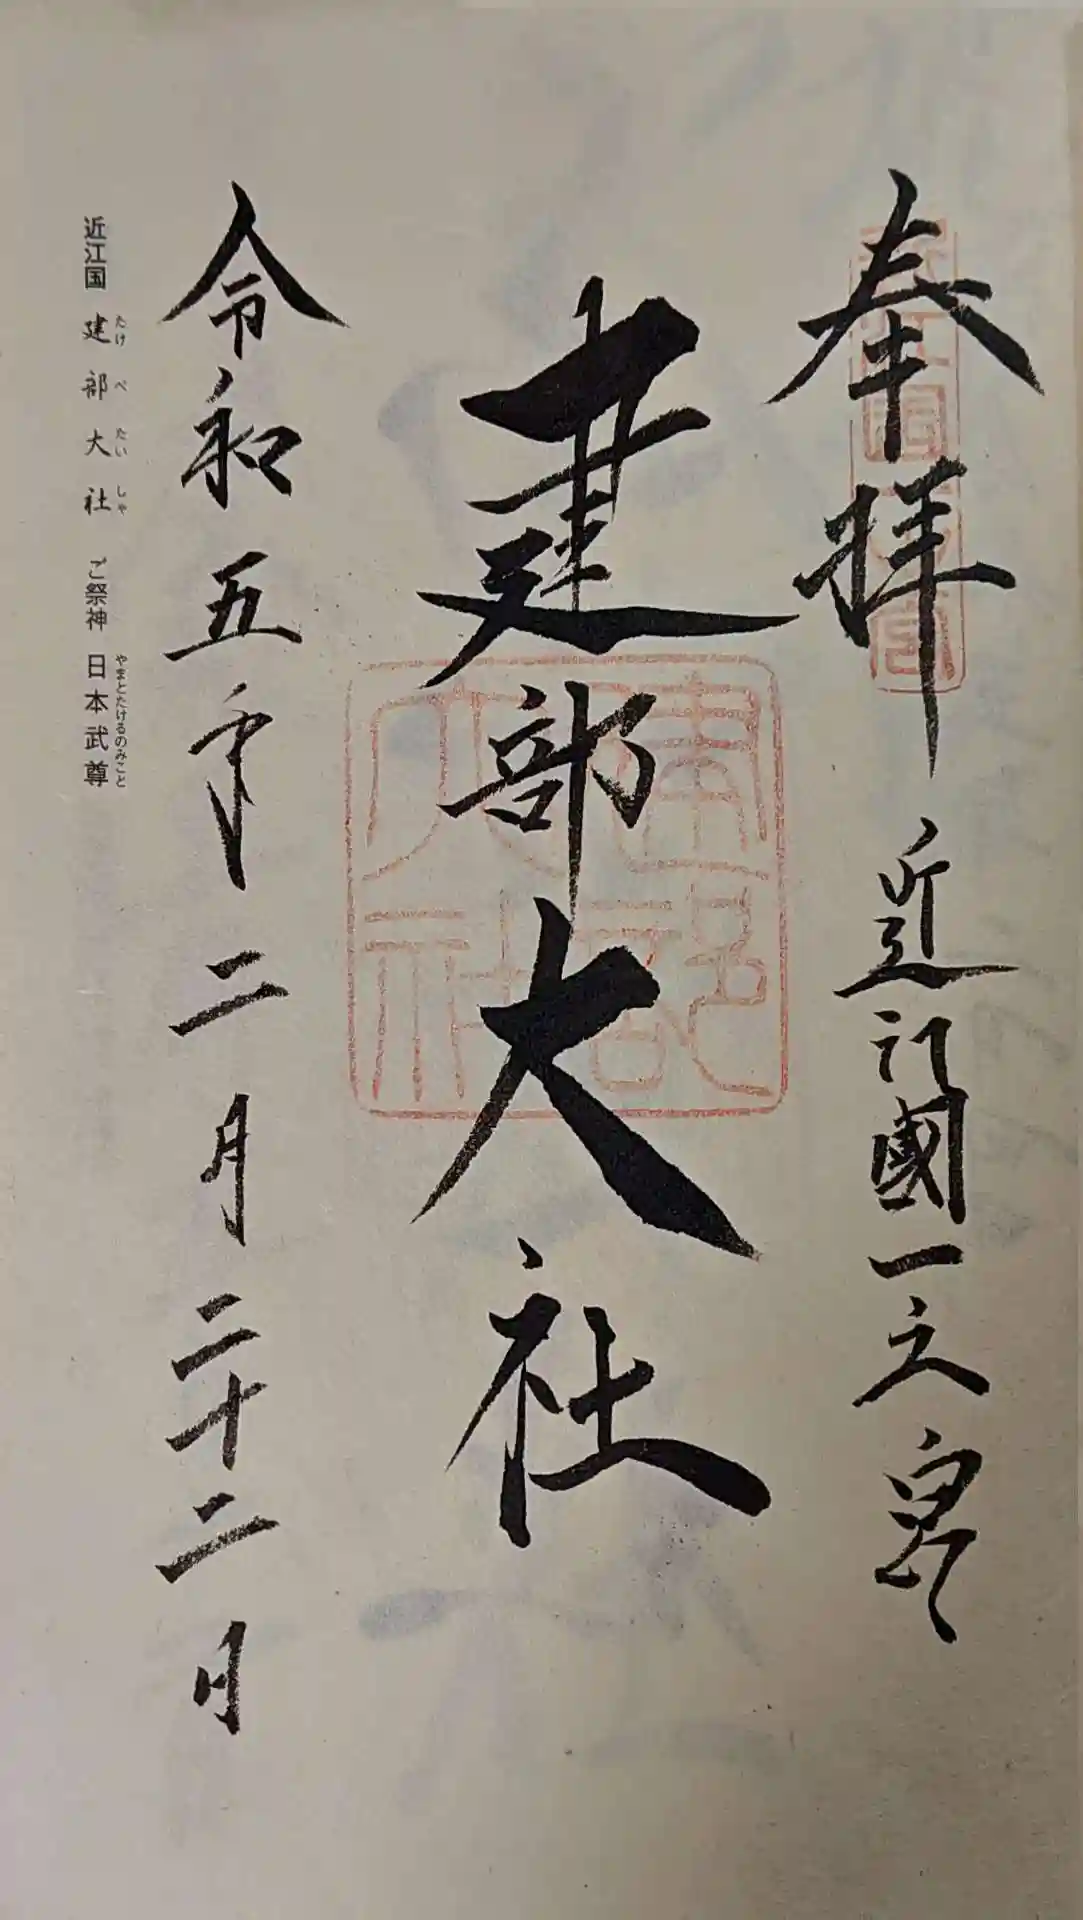 奉拝 近江國一之宮
建部大社
令和五年二月二十二日
近江国 建部大社 ご祭神 日本武尊
たけべたいしゃ
やまとたけるのみこと
近江国一之宮
建部大社